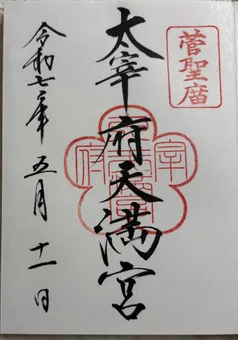 菅聖庿
太宰府天満宮
令和七年 五月 十一日